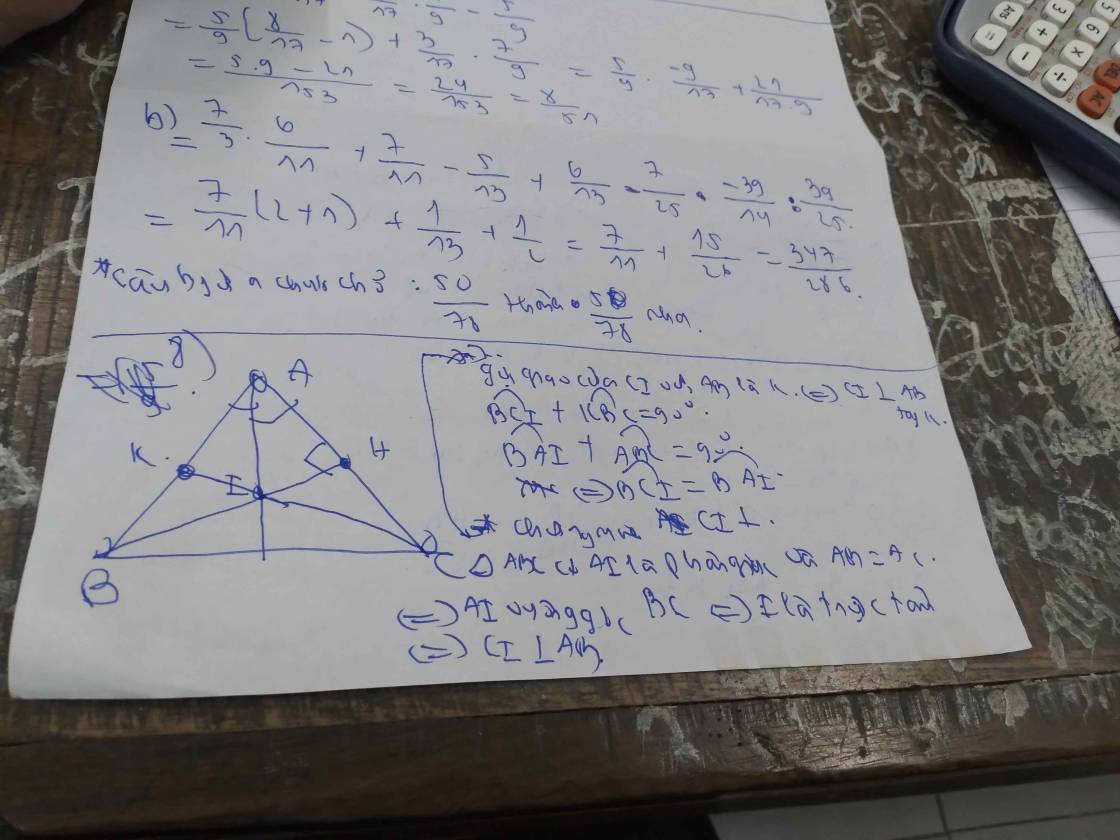 = 5/9 (8/17 - 1) + 3/17 . 7/9
= 5.9 - 21/153 = 24/153 = 8/51 = 5/9 . -9/17 + 21/17.9
b)
= 7/3 . 6/11 + 7/11 - 5/13 + 6/13 . 7/25 . -39/14 : 39/25.
= 7/11 (2+1) + 1/13 + 1/2 = 7/11 + 15/26 = 347/286.
: 50/78 . 50/78 nha.
8)
A
K. H
I
B C
giao của CI với AB là K. (=) CI ⊥ AB
tại K.
BCI + KBC = 90°.
BAI + ABC = 90°.
(=) BCI = BAI.
* CI ⊥.
Δ ABC có AI là phân giác và AB = AC.
(=) AI vuông góc BC (=) I là trực tâm
(=) CI ⊥ AB.